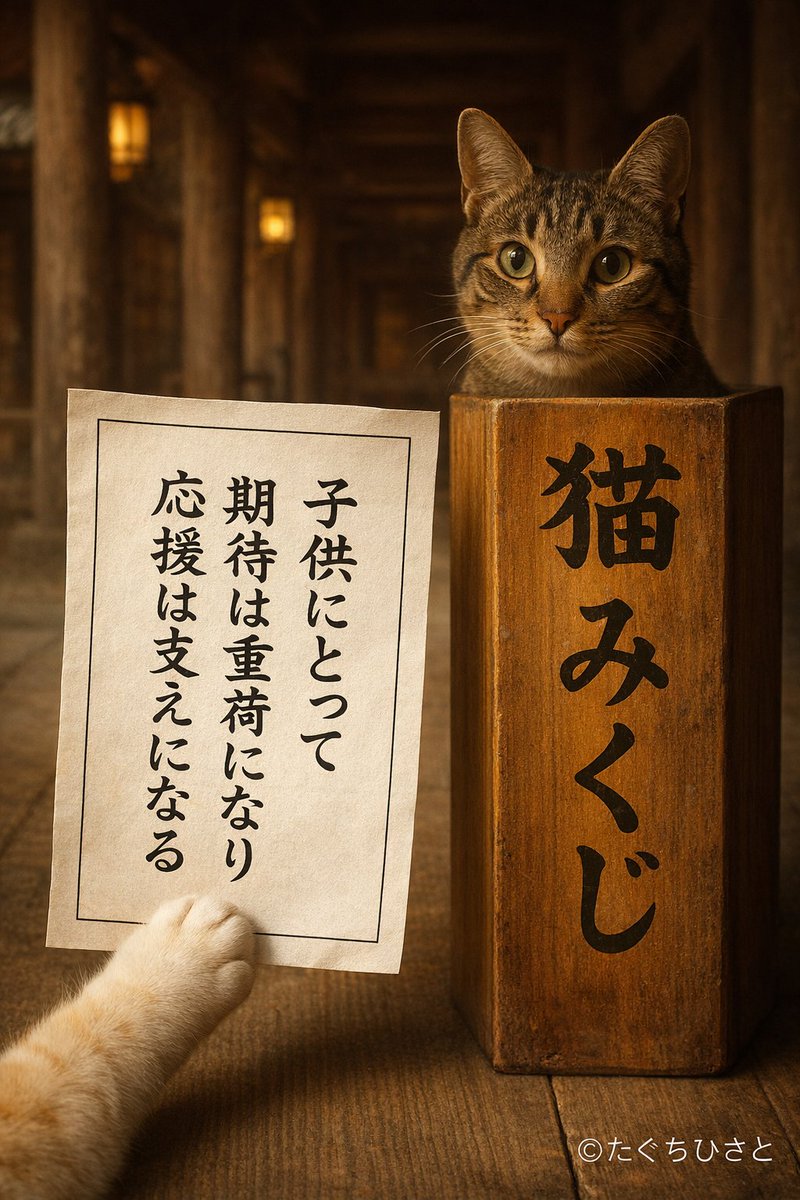 子供にとって
期待は重荷になり
応援は支えになる
猫みくじ
©たぐちひさと